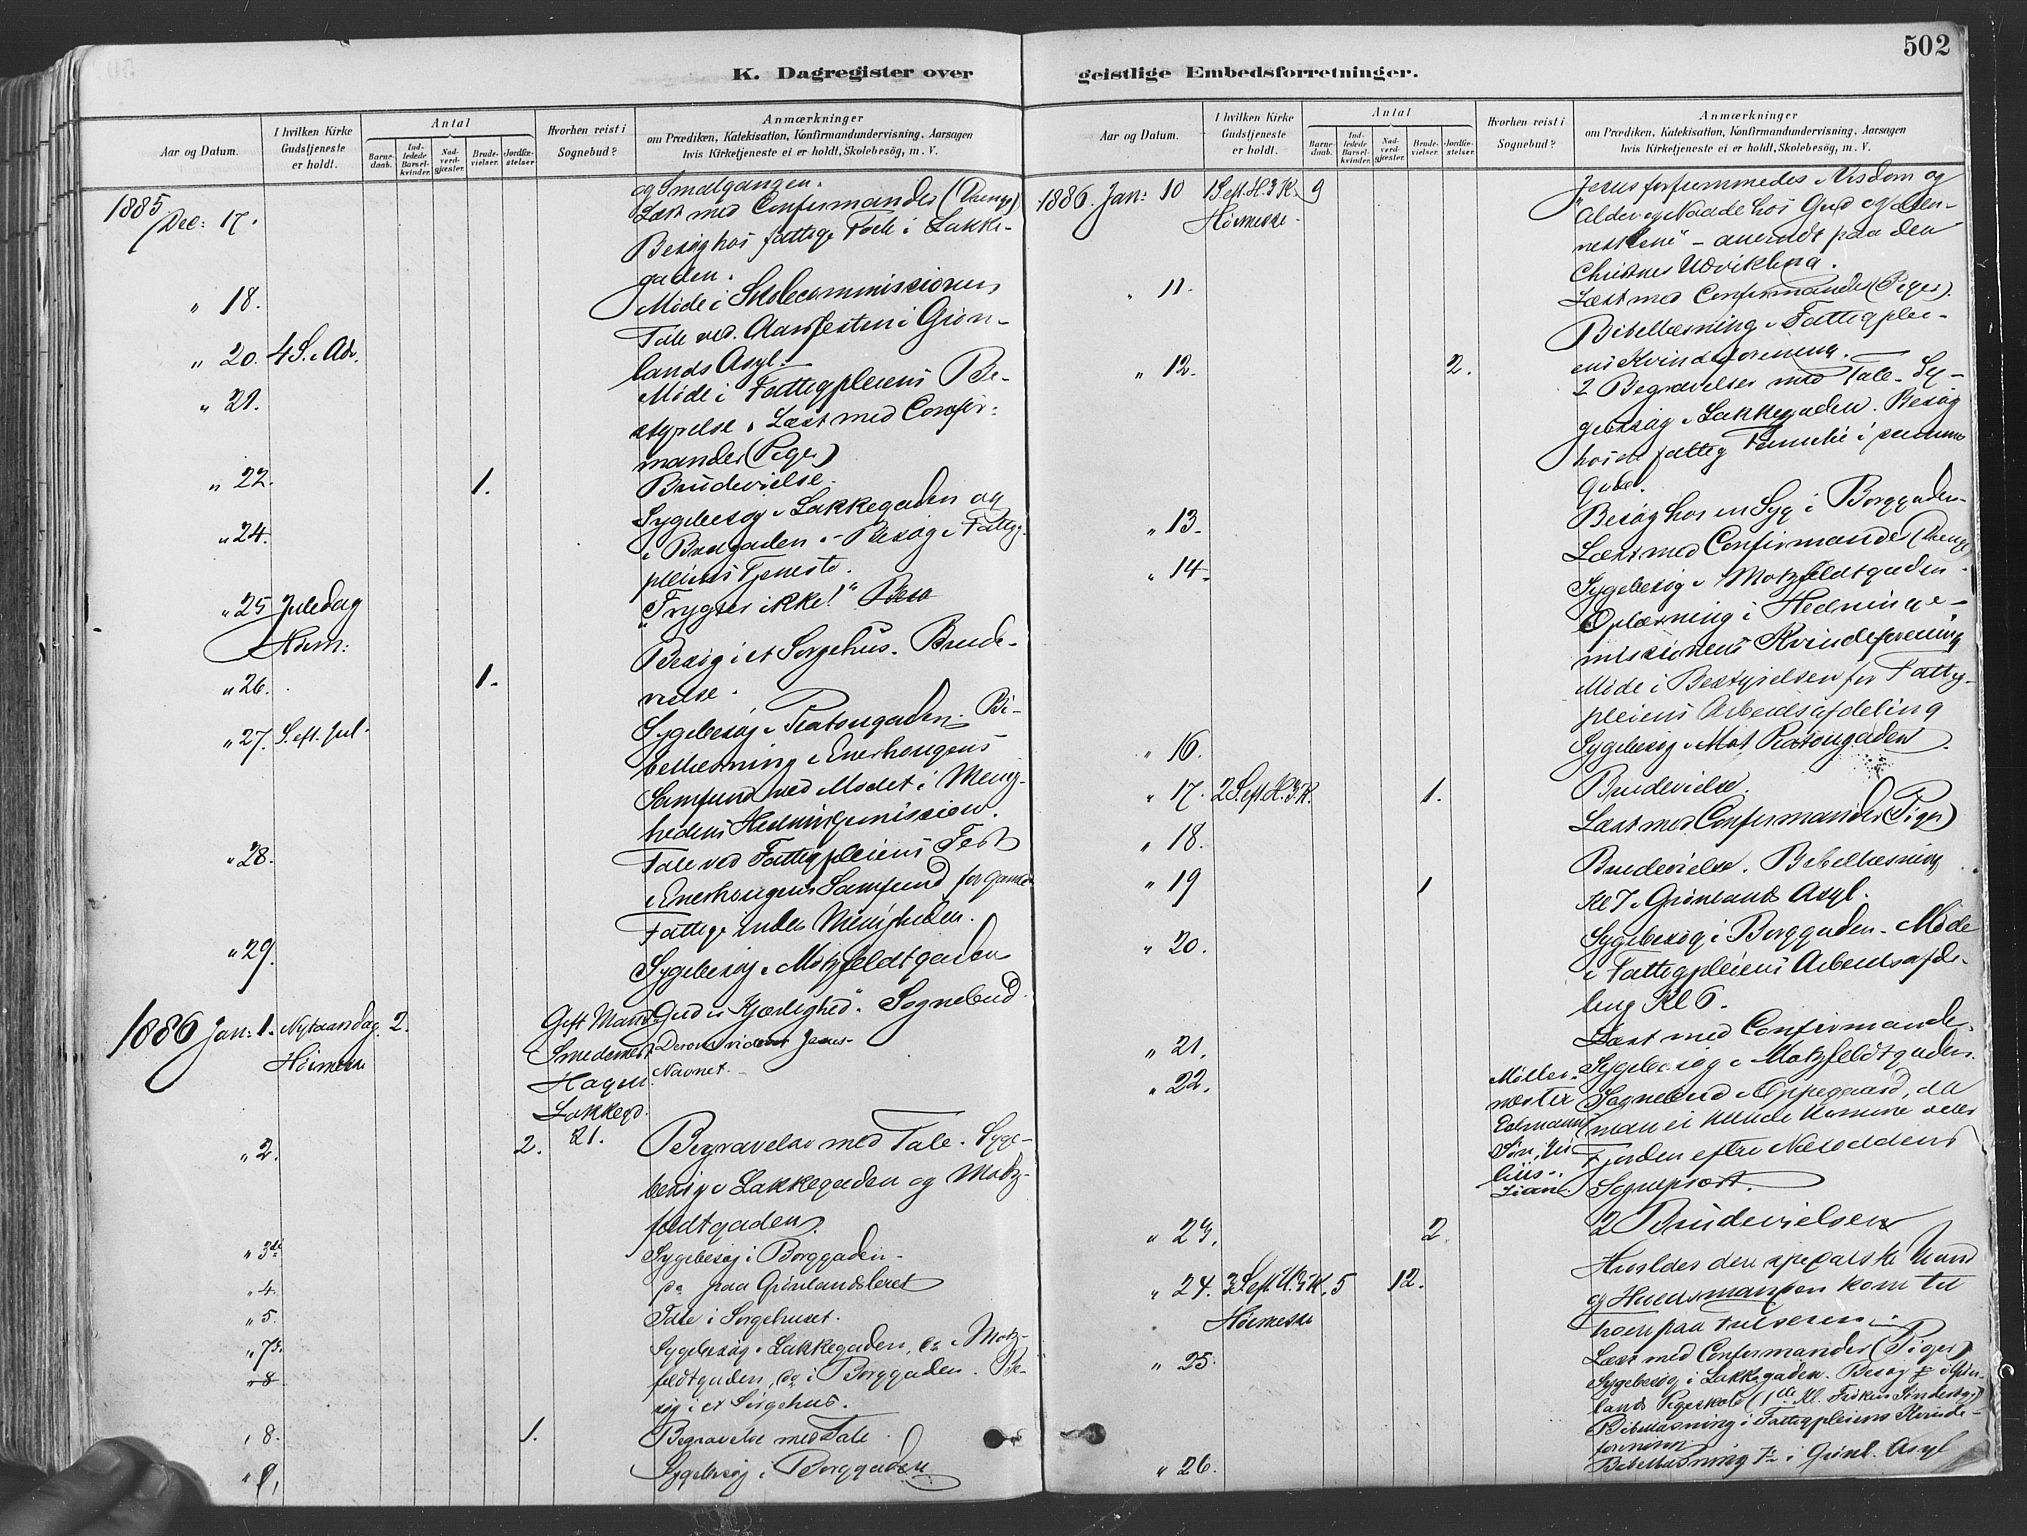 502
K. Dagregister over
geistlige Embedsforretninger.
Aar og Datum.
I hvilken Kirke
Gudstjeneste
er holdt.
Antal
Barne-
daab.
Ind-
ledede
Barsel-
kvinder.
Nad-
verd-
gjæster.
Brude-
vielser.
Jordfæ-
stelser.
Hvorhen reist i
Sognebud?
Anmærkninger
om Prædiken, Katekisation, Konfirmandundervisning, Aarsagen
hvis Kirketjeneste ei er holdt, Skolebesøg, m. V.
og Smalgangen.
1885
Dec: 17.
Læst med Confirmander (Drenge)
Besøg hos fattige Folk i Lakke-
gaden.
" 18.
Møde i Skolecommissionen
" 20. 4 S. i Adv.
Tale ved Aarsfesten i Grøn-
lands Asyl.
" 21.
Møde i Fattigpleiens Be-
styrelse. Læst med Confir-
mander (Piger)
" 22. 1.
Brudevielse.
" 24.
Sygebesøg i Lakkegaden og
i Borggaden. Besøg i Fattig-
pleiens Tjeneste.
" 25 Juledag
"Frygter ikke!"
" 26. 1.
Besøg i et Sørgehus. Brude-
vielse.
" 27. S. eft. Jul.
Sygebesøg i Platougaden. Bi-
bellæsning i Enerhougens
Samfund ved Mødet i Menig-
hedens Hedningemission.
" 28.
Tale ved Fattigpleiens Fest
i Enerhougens Samfund for gamle
Fattige inden Menigheden.
" 29.
Sygebesøg i Motzfeldtgaden
1886 Jan: 1. Nytaarsdag 2.
Høimesse
Gift Mand
Smedemest.
Hagen
Lakkegd.
21.
Gud er Kjærlighed". Sognebud.
Jesus-
Navnet.
" 2. 2.
Begravelse med Tale. Syge-
besøg i Lakkegaden og Motz-
feldtgaden.
" 3de
Sygebesøg i Borggaden.
" 4.
Do paa Grønlandsleret
" 5.
Tale i Sørgehuset.
" 7de
Sygebesøg i Lakkegaden, do i Motz-
" 8
feldtgaden, do i Borggaden. Be-
søg i et Sørgehus.
" 8. 1.
Begravelse med Tale.
" 9.
Sygebesøg i Borggaden.
Aar og Datum.
I hvilken Kirke
Gudstjeneste
er holdt.
Antal
Barne-
daab.
Ind-
ledede
Barsel-
kvinder.
Nad-
verd-
gjæster.
Brude-
vielser.
Jordfæ-
stelser.
Hvorhen reist i
Sognebud?
Anmærkninger
om Prædiken, Katekisation, Konfirmandundervisning, Aarsagen
hvis Kirketjeneste ei er holdt, Skolebesøg, m. V.
1886. Jan: 10 1 S. eft. H. 3 K. 9
Høimesse.
Jesus forfremmedes i Visdom og
Alder og Naade hos Gud og Men-
neskene" - anvendt paa den
Christnes Udvikling.
" 11.
Læst med Confirmander (Piger).
Bibellæsning i Fattigplei-
ens Kvindeforening.
" 12. 2.
2 Begravelser med Tale. Sy-
gebesøg i Lakkegaden. Besøg
hos en fattig Familie i samme
Gade.
" 13.
Besøg hos en Syg i Borggaden
" 14.
Læst med Confirmander (Drenge)
Sygebesøg i Motzfeldtgaden.
Oplæsning i Hedninge-
missionens Kvindeforening
Møde i Bestyrelsen for Fattig-
pleiens Arbeidsafdeling
" 16.
Sygebesøg i Platougaden
" 17. 2 S. eft. H. 3 K. 1.
Brudevielse.
" 18.
Læst med Confirmander (Piger)
" 19 1
Brudevielse. Bibellæsning
Kl 7 i Grønlands Asyl.
" 20.
Sygebesøg i Borggaden. Møde
i Fattigpleiens Arbeidsafde-
ling Kl 6.
" 21.
Læst med Confirmander.
Sygebesøg i Motzfeldtgaden.
" 22.
Møller-
mester
Søn,
Sognebud i Oppegaard, da
man ei kunde komme over
Fjorden efter Næsoddens
Sogneprest.
" 23. 2.
2 Brudevielser
" 24. 3 S. eft. H. 3 K. 5 12.
Høimesse
Hvorledes den spedalske Mand
og Høvedsmanden kom til
" 25.
Læst med Confirmander (Piger)
Sygebesøg i Lakkegaden. Besøg i Grøn-
lands Pigeskole
Bibellæsning i Fattigpleiens Kvinde-
forening
" 26.
Bibellæsning i Grønl. Asyl